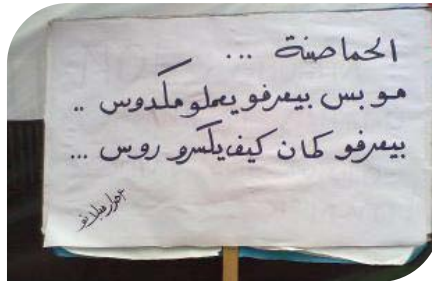 الحماصنة ...
مو بس بيعرفو يعملو مكدوس ..
بيعرفو كمان كيف يكسرو روس ...